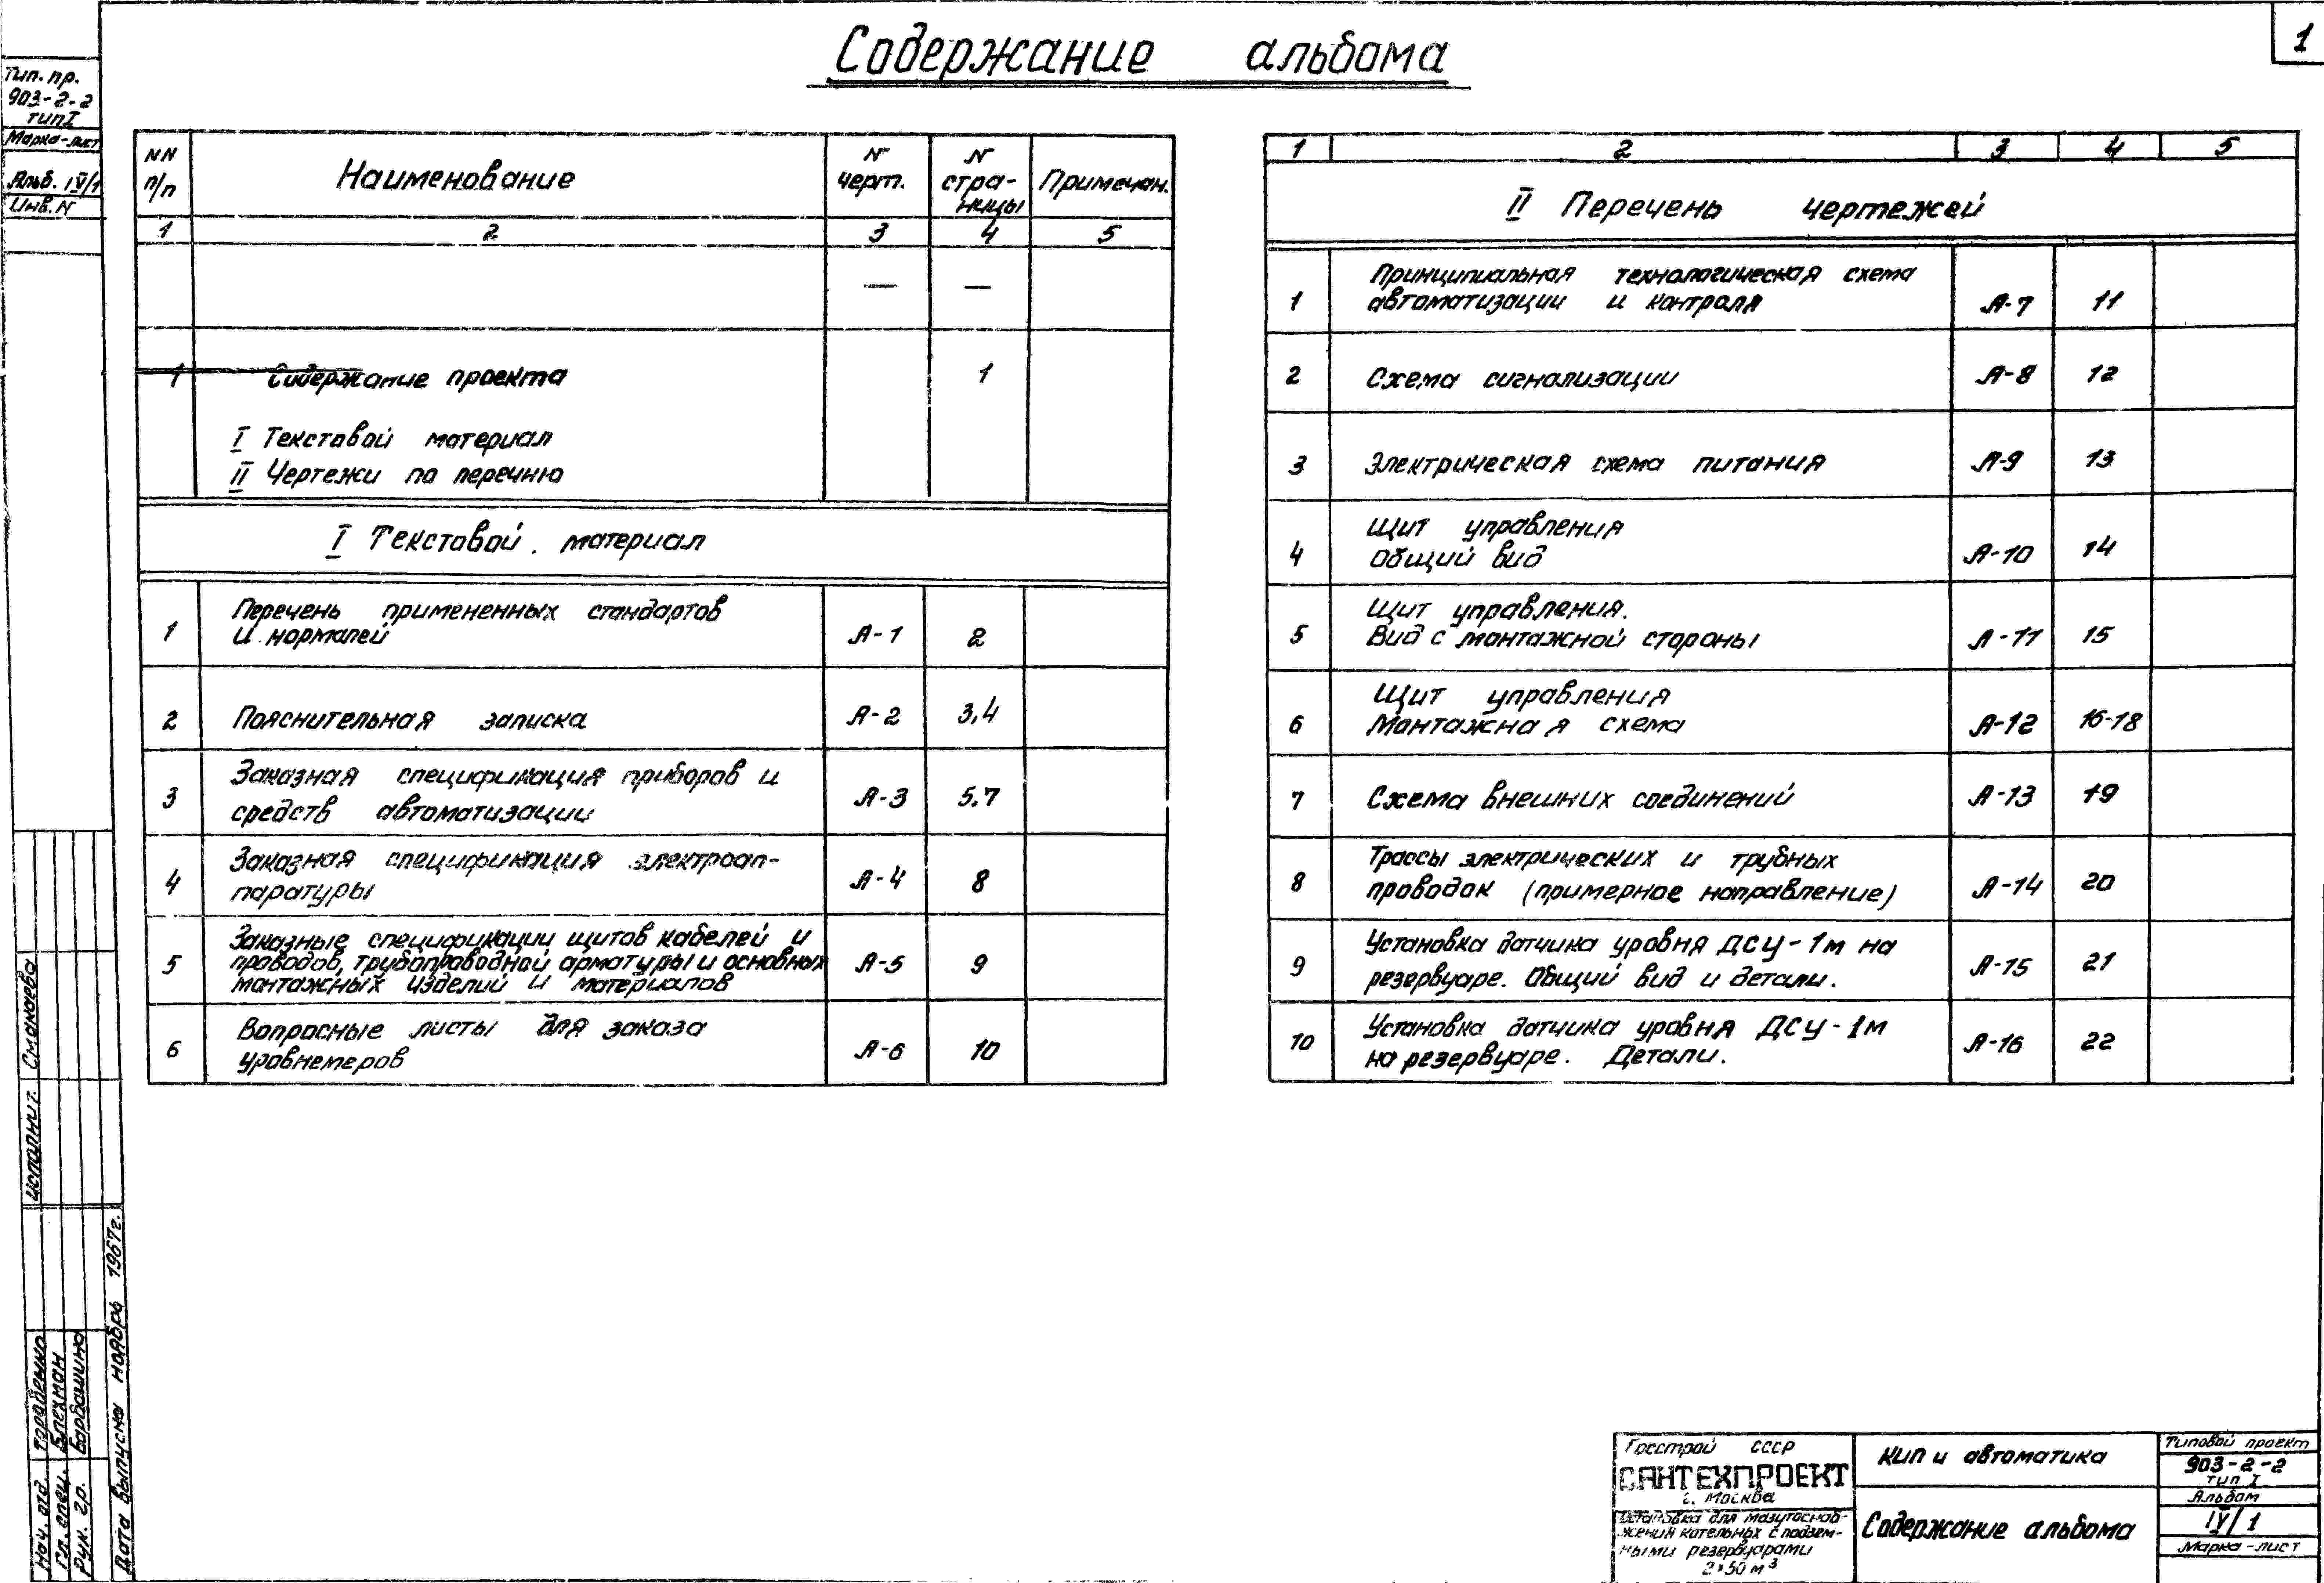 1
Содержание альбома
Тип. пр.
903-2-2
тип I
Марка-лист
Альб. IV/1
Инв. N
NN п/п
Наименование
N черт.
N стра-
ницы
Примечан.
1 2 3 4 5
— —
1 Содержание проекта 1
I Текстовой материал
II Чертежи по перечню
I Текстовой материал
Перечень примененных стандартов
1 и нормалей А-1 2
2 Пояснительная записка А-2 3,4
Заказная спецификация приборов и
3 средств автоматизации А-3 5,7
Заказная спецификация электроап-
4 паратуры А-4 8
Заказные спецификации щитов кабелей и
5 проводов, трубопроводной арматуры и основных А-5 9
монтажных изделий и материалов
Вопросные листы для заказа
6 уровнемеров А-6 10
1 2 3 4 5
II Перечень чертежей
Принципиальная технологическая схема
1 автоматизации и контроля А-7 11
2 Схема сигнализации А-8 12
3 Электрическая схема питания А-9 13
Щит управления
4 Общий вид А-10 14
Щит управления.
5 Вид с монтажной стороны А-11 15
Щит управления
6 Монтажная схема А-12 16-18
7 Схема внешних соединений А-13 19
Трассы электрических и трубных
8 проводок (примерное направление) А-14 20
Установка датчика уровня ДСУ-1м на
9 резервуаре. Общий вид и детали. А-15 21
Установка датчика уровня ДСУ-1м
10 на резервуаре. Детали. А-16 22
Исполнит. Смакаева
Нач. отд. Тарабенко
Гл. спец. Блехман
Рук. гр. Барбашина
Дата выпуска ноябрь 1967г.
Госстрой СССР
САНТЕХПРОЕКТ
г. Москва
Установка для мазутоснаб-
жения котельных с подзем-
ными резервуарами
2×50 м³
КИП и автоматика
Содержание альбома
Типовой проект
903-2-2
тип I
Альбом
IV/1
Марка-лист